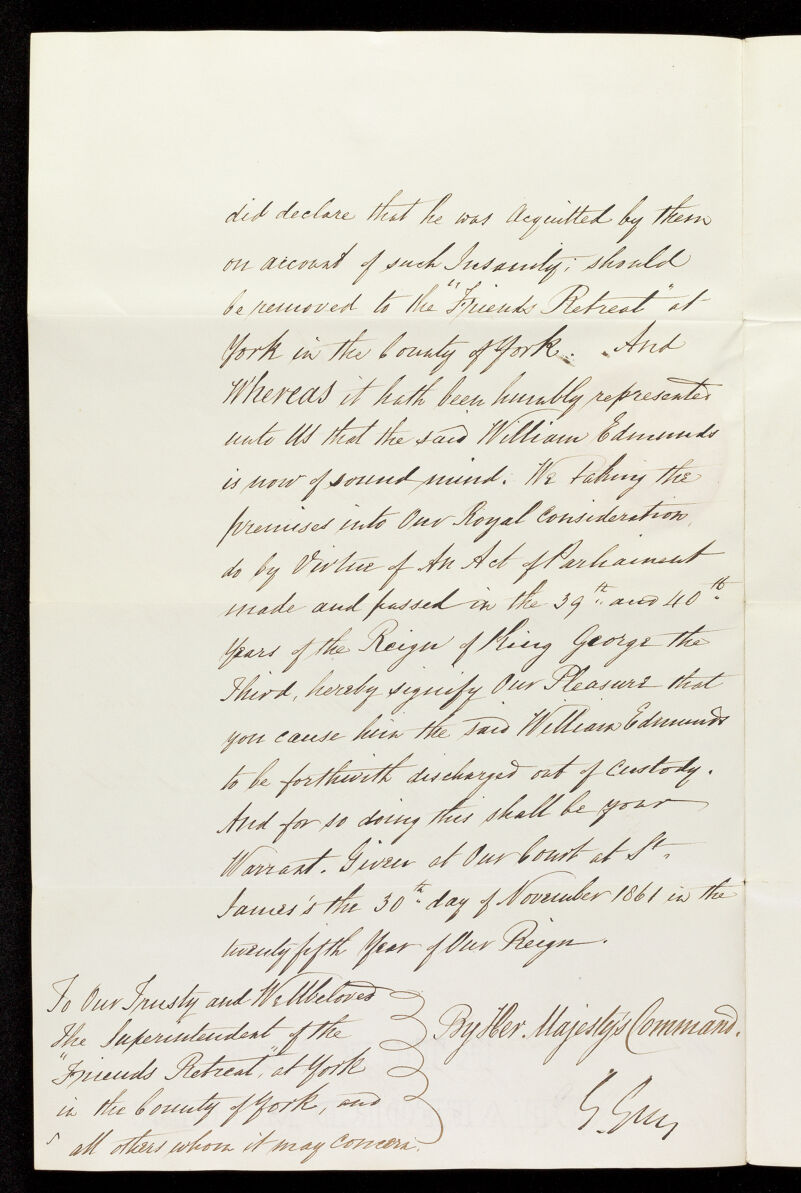 did declare that he was Acquitted by them
on account of such Insanity; should
be removed to the "Friends Retreat" at
York in the County of York. And
Whereas it hath been humbly represented
unto Us that the said William Edmunds
is now of sound mind: We taking the
premises into Our Royal Consideration,
do by Virtue of An Act of Parliament
made and passed in the 39th and 40th
Years of the Reign of King George the
Third, hereby signify Our Pleasure that
you cause him the said William Edmunds
to be forthwith discharged out of Custody.
And for so doing this shall be your
Warrant. Given at Our Court at St.
James's the 30th day of November 1861 in the
twenty fifth Year of Our Reign.
To Our Trusty and Wellbeloved
The Superintendent of the
"Friends Retreat", at York
in the County of York, and
all others whom it may Concern.
By Her Majesty's Command.
G. Grey